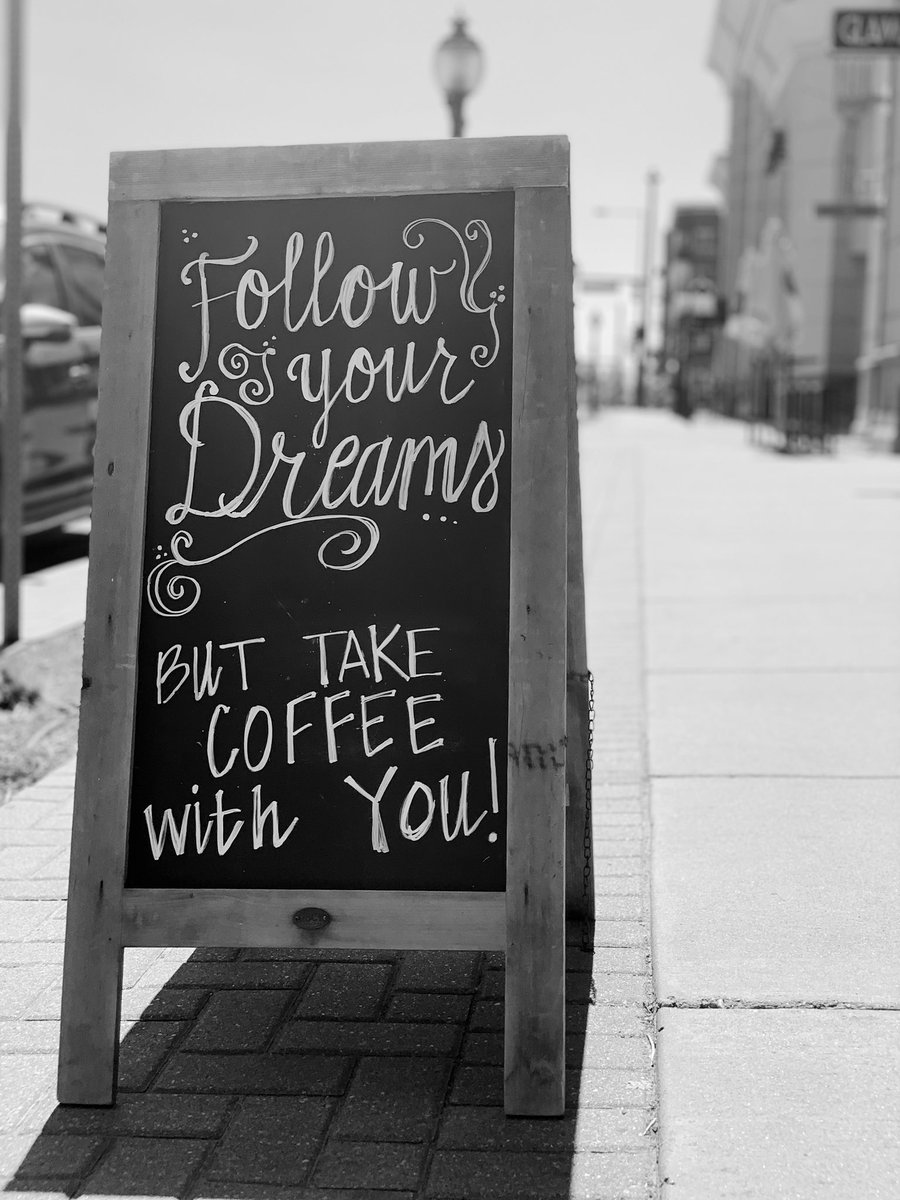 Follow
your
Dreams
BUT TAKE
COFFEE
with You!